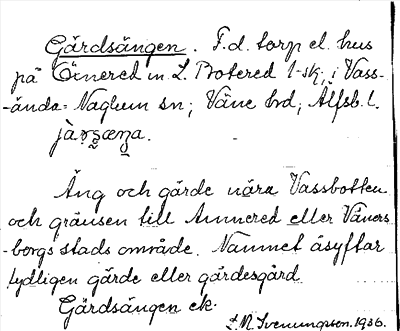 Gärdsängen. F.d. torp el. hus
på Örnered m L. Botered 1-sk, i Vass-
-ända-Naglum sn; Väne hd; Älfsb. l.
Äng och gärde nära Vassbotten
och gränsen till Annered eller Väners-
-borgs stads område. Namnet åsyftar
tydligen gärde eller gärdesgård.
Gärdsängen ek.
Svenungson. 1936.